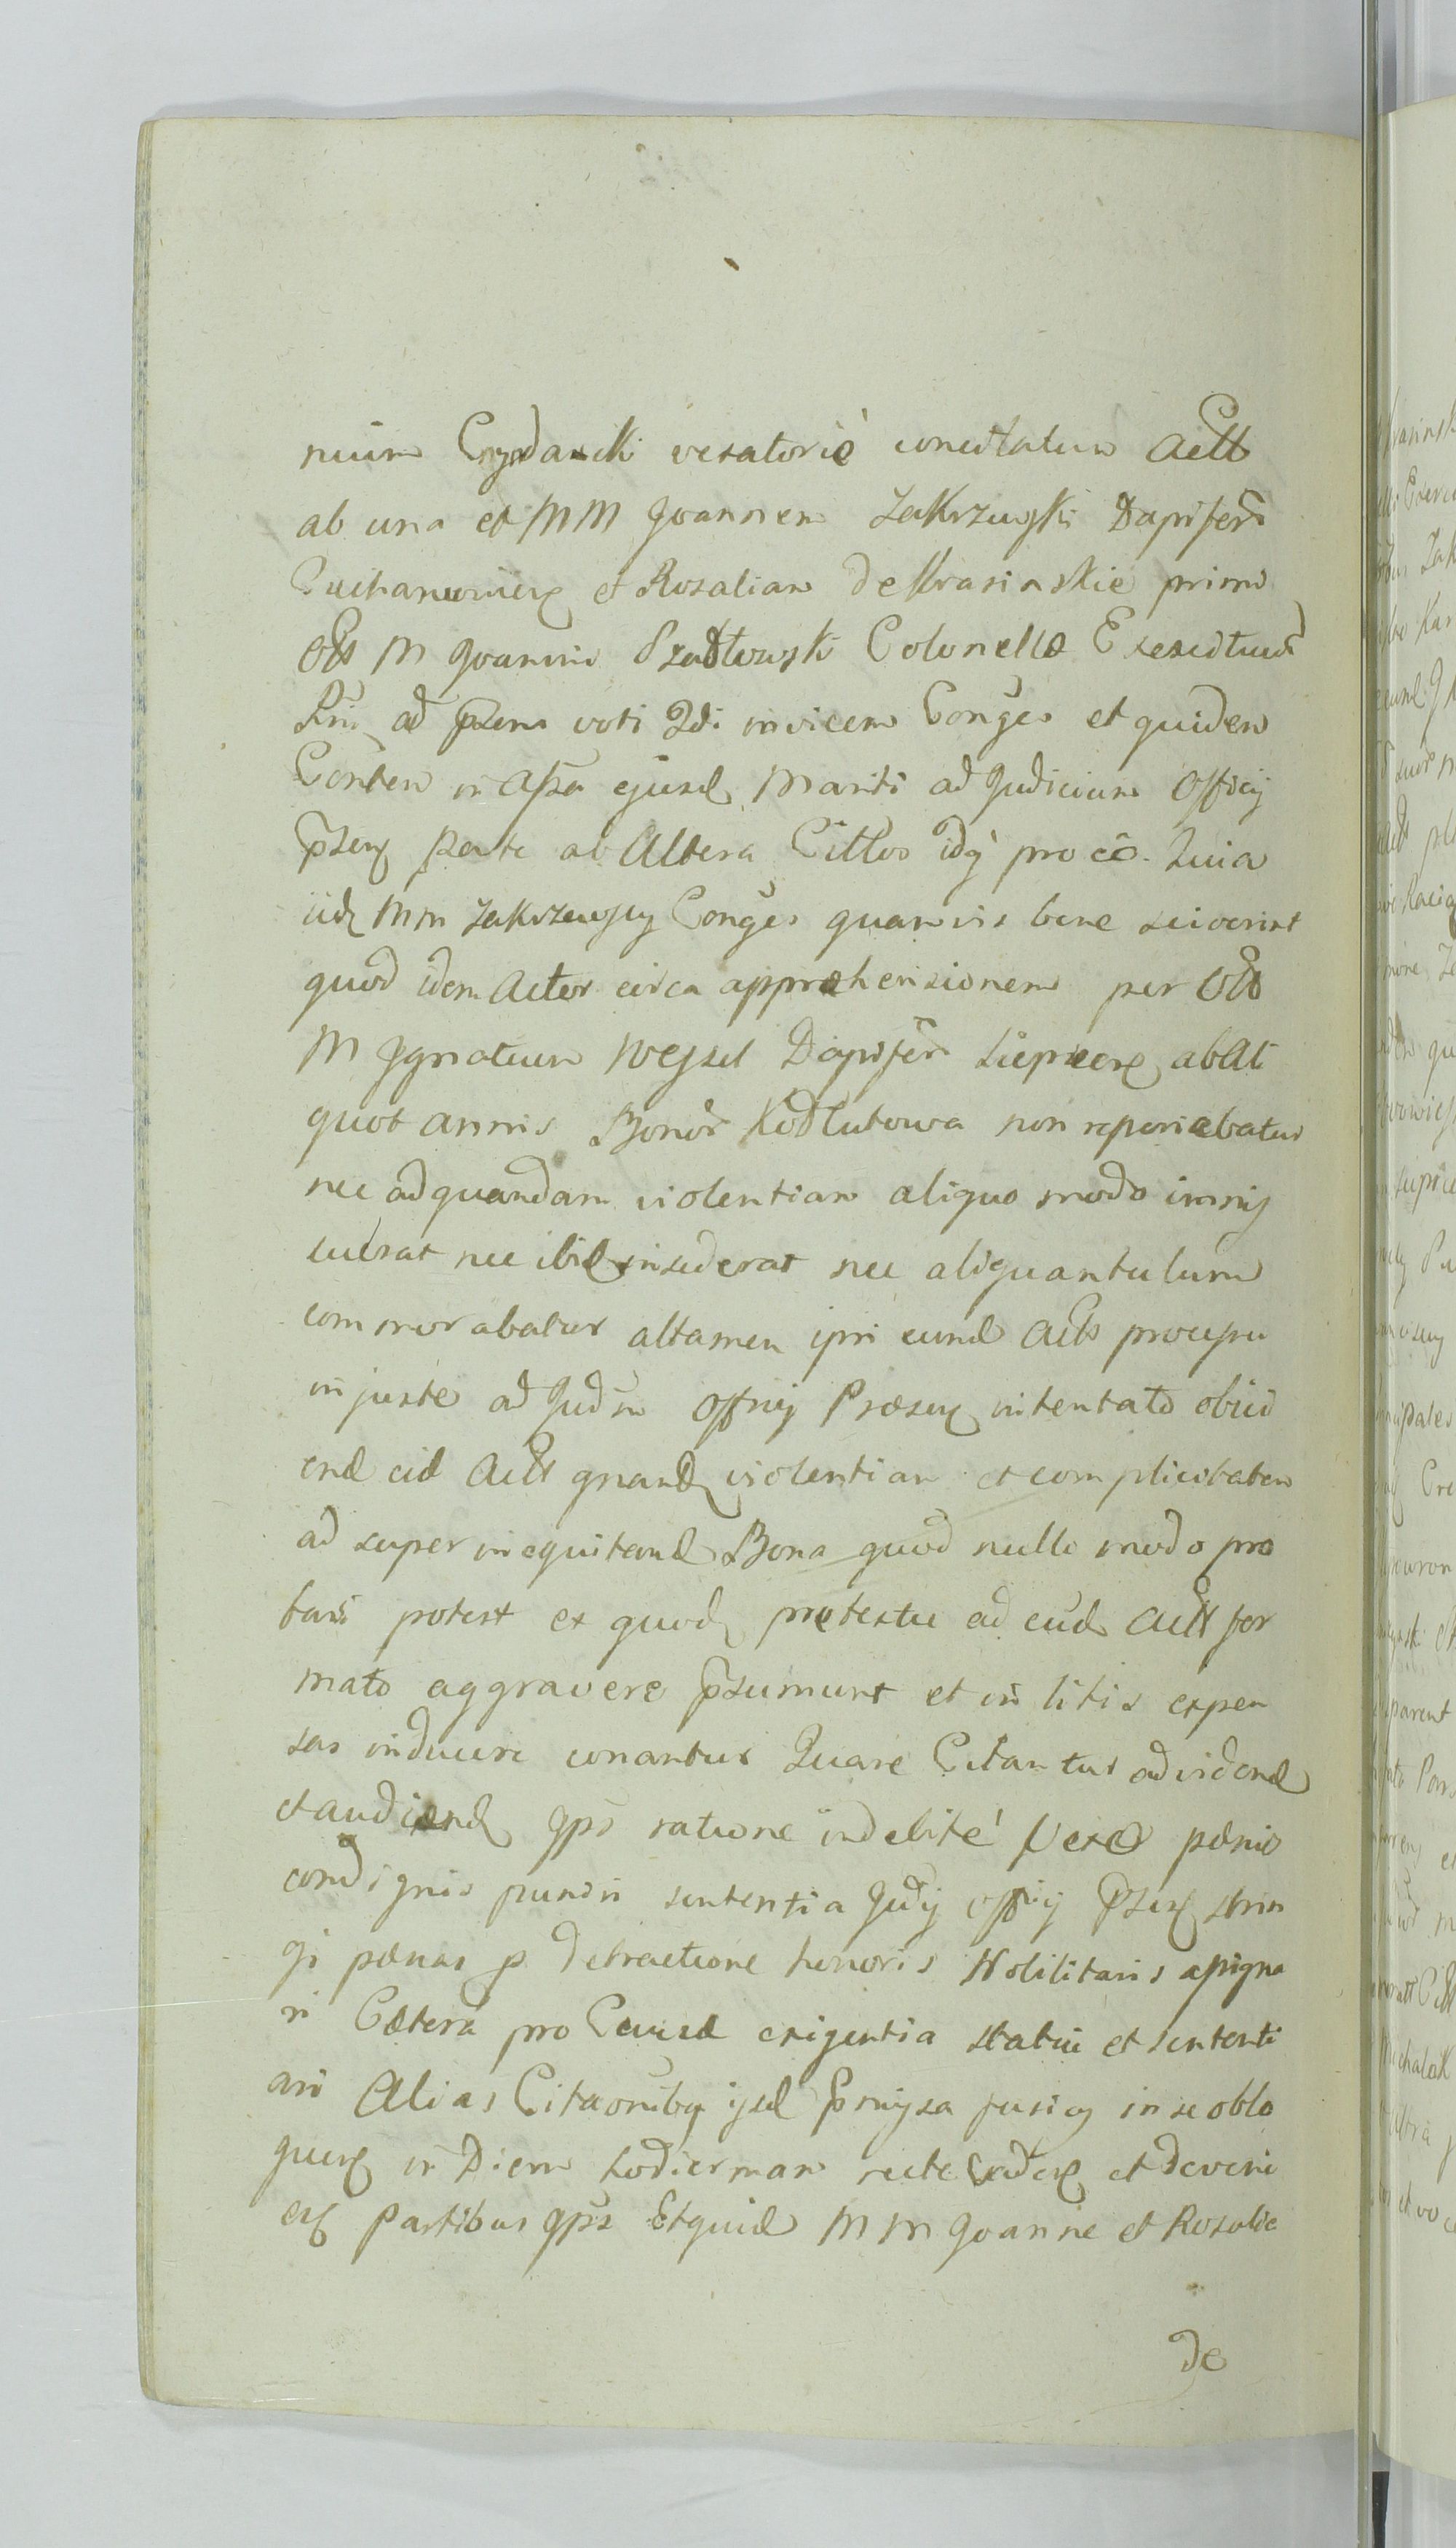 nium vexatorie concitatum Actt
ab una et MM Joannem Zakrzewski Dapiferũ
et Rosaliam de Krasinskie primo
Ols M Joannini Szadlowski Colonello Exercituũ
ad pzens voti 2di invicem Conges et quidem
Conten in Assa ejusd Mariti ad Judicium Officij
pzens parte ab Altera Cittos idq pro eo. Quia
iidz MM Zakrzewscy Conges quamvis bene sciverint
quod idem Actor circa apprehensionem per Ols
M Ignatium Wessel Dapiferũ ab Ali
quot annis Bonor Kodlutowa non reperiebatur
nec ad quandam violentiam aliquo modo immis
cuerat nec ibid insederat nec aliquantulum
commorabatur attamen ipsi eund Actt
injuste ad Judm Offij Præsens intentato objici
end eid Actt quand violentiam et complicitatem
ad super inequitand Bona quod nullo modo pro
bari potest ex quod prætextu ad eũd Actt for
mato aggravere pzumunt et in litis expen
sas inducere conantur Quare Citantur ad vidend
et audiend ratione indebite pænis
condignis puniri sententia Judij offij pzens strin
gi pænas p detractione honoris Nobilitaris assigna
ri Cætera pro Causæ exigentia statui et sententi
ari Alias Citaonibq ijsd pmissa fusiq in se oblo
quens in Diem hodiernam recte caders et deveni
ers Partibus qps Et quid MM Joanne et Rosalie
de